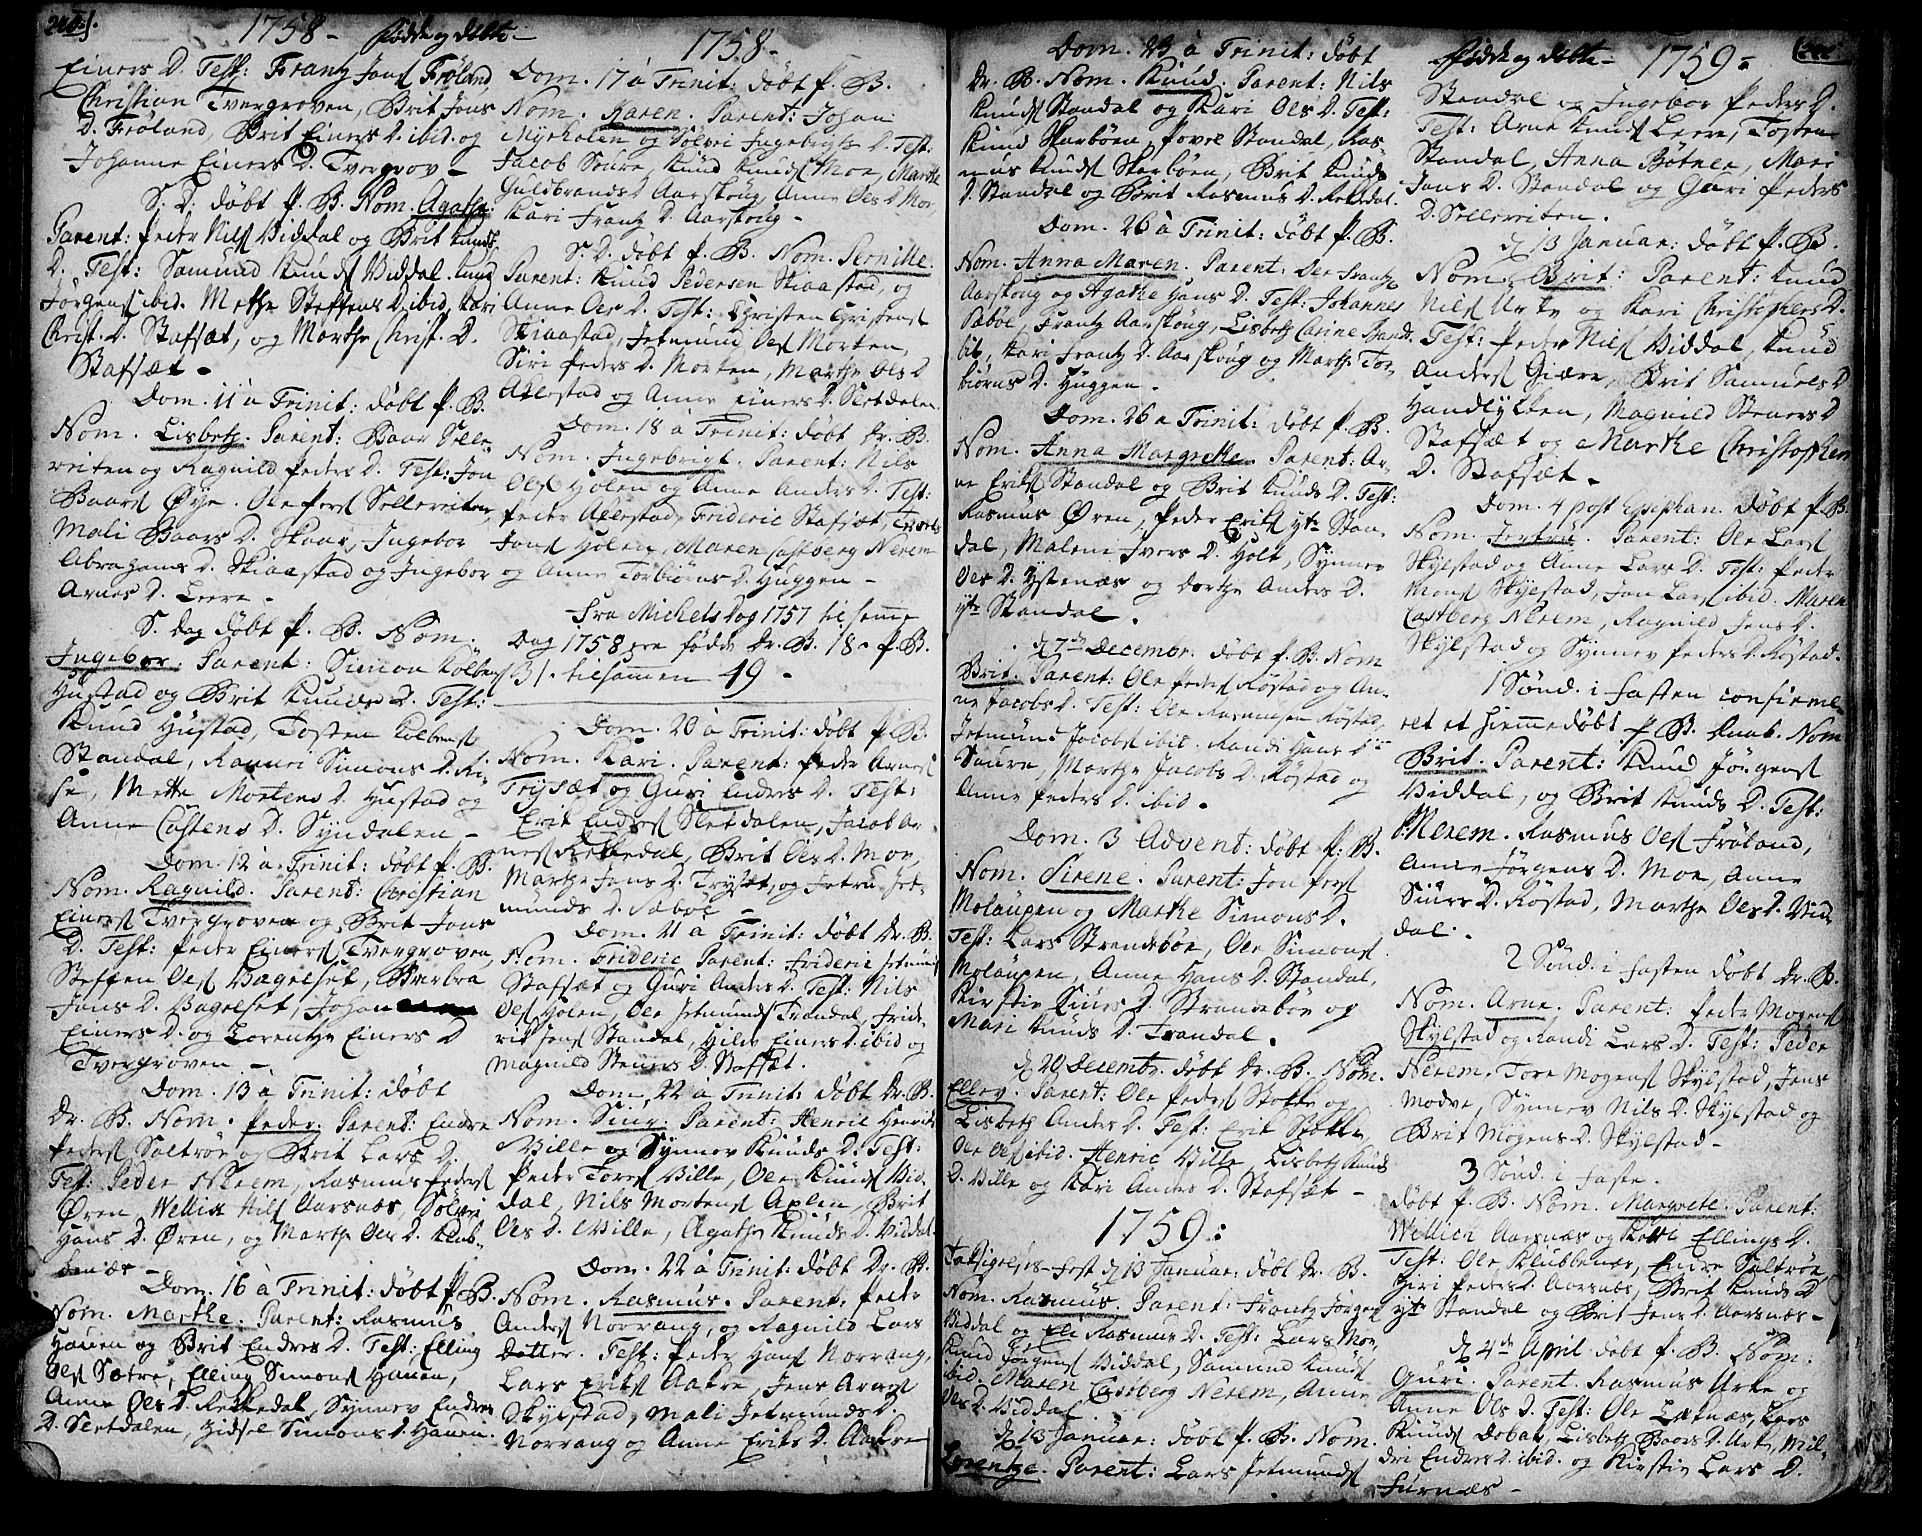 1758 - Fødde og døbte -
Einers D. Test: Frantz Jons Frøland
Christian Tvergroven, Brit Jons
D. Frøland, Brit Einers D. ibid. og
Johanne Einers D. Tvergrov -
S. D. døbt P. B. Nom. Agathe.
Parent: Peder Nils Viddal og Brit Knuds
D. Test: Samund Knuds Viddal. Knud
Jørgens ibid. Merthe Steffens D. ibid, Kari
Christ. D. Stafsæt, og Marthe Christ. D.
Stafsæt.
Dom. 11 à Trinit: døbt P. B.
Nom. Lisbeth. Parent: Baar Selle
vriten og Ragnild Peders D. Test: Jon
Baars Øye. Ole Pers Sellevriten,
Mali Baars D. Skaar, Ingebor
Abrahams D. Skiaastad og Ingebor
Arnes D. Leere.
S. Dag døbt P. B. Nom.
Ingebor. Parent: Simon Kolbens
Hustad og Brit Knuds D. Test:
Knud Hustad, Tosten Kolbens
Standal, Raneri Simons D.
Mette Mortens D. Hustad og
Anne Castens D. Syndalen -
Dom. 12 à Trinit: døbt P. B.
Nom. Ragnild. Parent: Christian
Einers Tvergroven og Brit Jons
D. Test: Peder Einers Tvergroven,
Steffen Ols Bagelset, Barbra
Jons D. Bagelset, Johan
Einers D. og Lorentze Einers D
Tvergroven -
Dom. 13 à Trinit: døbt
Dr. B. Nom. Peder. Parent: Endre
Peders Saltrøe og Brit Lars D.
Test: Peder Nerem, Rasmus Peders
Øren, Wellik Nils Aarsnæs, Sølvi
Hans D. Øren, og Marthe Oles D. Klub-
benæs -
Dom. 16 à Trinit: døbt P. B.
Nom. Marthe. Parent: Rasmus
Hauen og Brit Endres D. Test: Elling
Ols Sætre, Elling Simons Hauen,
Anne Oles D. Rekkedal, Synnev Endres
D. Sletdalen, Gidsel Simons D. Hauen.
1758 -
Dom. 17 à Trinit: døbt P. B.
Nom. Karen. Parent: Johan
Myrholen og Sølvi Ingebrigts D. Test.
Jacob Soure, Knud Knuds Moe, Marthe
Guldbrands D Aarskoug, Anne Oles D Moe,
Kari Frantz D. Aarskoug -
S. D. døbt P. B. Nom. Pernille.
Parent: Knud Pedersen Skiaastad, og
Anne Oles D. Test: Christen Christens
Skiaastad, Jetmund Ols Morten,
Siri Peders D. Morten, Marthe Oles D
Alestad og Anne Einers D. Sletdalen
Dom. 18 à Trinit: døbt Dr. B.
Nom. Ingebrigt. Parent: Nils
Ols Holen og Anne Anders D. Test:
Peder Alestad, Frideric Stafsæt,
Jons Holen, Maren Castberg Nerem
og Anne Torbiørns D. Huggen -
Fra Michels Dag 1757 til same
Dag 1758 ere fødde Dr. B. 18 - P. B.
31. tilsammen 49 -
Dom. 20 à Trinit: døbt P. B.
Nom. Kari. Parent: Peder Arnes
Trysæt og Guri Endres D. Test:
Erik Endres Sletdalen, Jacob Ar-
nes Rekkedal, Brit Oles D. Moe,
Marthe Jons D. Trysæt, og Jetru Jet-
munds D. Sæbøe -
Dom. 21 à Trinit: døbt Dr. B.
Nom. Frideric Parent: Frideric Jetmunds
Stafsæt og Guri Anders D. Test: Nils
Ols Holen, Ole Jetmunds Trandal, Fride-
rik Jons Standal, Hilde Einers D. ibid og
Magnild Steners D. Stafsæt.
Dom. 22 à Trinit: døbt Dr. B.
Nom. Siur Parent: Henric Henriks
Ville og Synnev Knuds D. Test:
Peder Tores Ville, Ole Knuds Vid-
dal, Nils Mortens Aplen, Brit
Oles D. Ville, Agathe Knuds D. Viddal
Dom. 22 à Trinit: døbt Dr. B.
Nom. Rasmus. Parent: Peder
Anders Norrang, og Ragnild Lars
Dotter. Test: Peder Hans Norrang,
Lars Eriks Aakre, Jens Arnes
Skylstad, Mali Jetmunds D.
Norrang og Anne Eriks D. Aakre
Dom. 23 à Trinit: døbt
Dr. B. Nom. Knud. Parent: Nils
Knuds Standal og Kari Oles D. Test:
Knud Skarbøen, Povel Standal, Ras-
mus Knuds Skarbøen, Brit Knuds
D. Standal og Brit Rasmus D. Rekkedal.
Dom. 26 à Trinit: døbt P. B.
Nom. Anna Maren. Parent: Ole Frantz
Aarskoug og Agathe Hans D. Test: Johannes
Sæbøe, Frantz Aarskoug, Lisbeth Carine
Kari Frantz D. Aarskoug og Marthe Tor-
biørns D. Huggen.
Dom. 26 à Trinit: døbt P. B.
Nom. Anna Margrethe. Parent: Ar-
ne Eriks Standal og Brit Knuds D. Test:
Rasmus Øren, Peder Eriks ytr Stan-
dal, Malene Ivers D. Holt, Synnev
Oles D. Ystenæs og Dorthe Anders D.
ytr Standal.
d. 7de Decembr. døbt P. B. Nom
Brit. Parent: Ole Peders Røstad og An-
ne Jacobs D. Test: Ole Rasmusen Røstad,
Jetmund Jacobs ibid. Randi Hans D
Saure, Marthe Jacobs D. Røstad og
Anne Peders D. ibid.
Dom. 3 Advent: døbt P. B.
Nom. Sirene. Parent: Jon Pers
Molaugen og Marthe Simons D.
Test: Lars Strandebøe, Ole Simons
Molaugen, Anne Hans D. Standal,
Kirstie Siurs D. Strandebøe og
Mari Knuds D. Trandal.
d. 20 Decembr. døbt Dr. B. Nom.
Ellev. Parent: Ole Peders Stokke og
Lisbeth Anders D. Test: Erik Stokke,
Ole Ols ibid. Henric Ville, Lisbeth Knuds
D. Ville og Kari Anders D. Stafsæt -
1759:
fest d. 13 Januar: døbt Dr. B.
Nom. Rasmus. Parent: Frantz Jørgens
Viddal og Eli Rasmus D. Test: Lars Moe,
Knud Jørgens Viddal, Samund Knuds
ibid. Maren Castberg Nerem, Anne
Oles D. Viddal
d. 13 Januar: døbt P. B. Nom.
Lorentze. Parent: Lars Jetmunds
Fødde og døbte - 1759 -
Standal og Ingebor Peders D.
Test: Arne Knuds Leere, Tosten
Standal, Anna Bøtner, Mari
Jons D. Standal og Guri Peders
D. Sellevriten.
d. 13 Januar: døbt P. B.
Nom. Brit: Parent: Knud
Nils Urke og Kari Christophers D.
Test: Peder Nils Viddal, Knud
Anders Giære, Brit Samuels D
Handlykken, Magnild Steners D
Stafsæt og Marthe Christophers
D. Stafsæt.
Dom. 4 post Epiphan. døbt P. B.
Nom. Jertru. Parent: Ole Lars
Skylstad og Anne Lars D. Test: Peder
Mons Skylstad, Jon Lars ibid. Maren
Castberg Nerem, Ragnild Jens D.
Skylstad og Synnev Peders D. Røstad.
1 Sønd. i Fasten confirme-
ret et hiemedøbt P. B. Nom
Brit. Parent: Knud Jørgens
Viddal, og Brit Knuds D. Test:
P: Nerem. Rasmus Ols Frøland,
Anne Jørgens D. Moe, Anne
Siurs D. Røstad, Marthe Oles D. Vid-
dal.
2 Sønd. i Fasten døbt Dr. B.
Nom. Arne. Parent: Peder Mogens
Skylstad og Randi Lars D. Test: Peder
Nerem. Tore Mogens Skylstad, Jens
Modve, Synnev Nils D. Skylstad og
Brit Mogens D. Skylstad -
3 Sønd. i Faste.
døbt P. B. Nom. Margrete. Parent:
Wellich Aarsnæs og Ellings D.
Test: Ole Klubbenæs, Endre Saltrøe,
Giri Peders D. Aarsnæs, Brit Knuds D
ytr Standal og Brit Jens D. Aarsnæs -
d. 4de April døbt P. B. Nom.
Guri. Parent. Rasmus Urke og
Anne Ols D. Test: Ole Leknæs, Lars
Knuds Lisbeth Baars D. Urke, Mil-
dri Endres D. ibid. og Kirstie Lars D.
Furnæs -